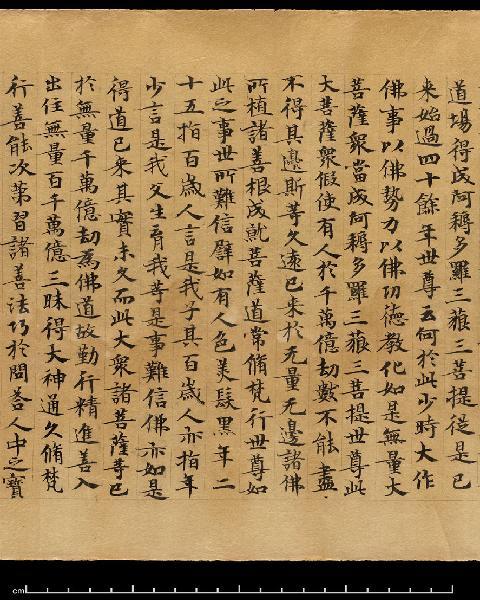 道場得成阿耨多羅三藐三菩提從是已
来始過四十餘年世尊云何於此少時大作
佛事以佛勢力以佛功德教化如是無量大
菩薩衆當成阿耨多羅三藐三菩提世尊此
大菩薩衆假使有人於千萬億劫數不能盡
不得其邊斯等久遠已来於无量无邊諸佛
所植諸善根成就菩薩道常脩梵行世尊如
此之事世所難信譬如有人色美髮黑年二
十五指百歳人言是我子其百歳人亦指年
少言是我父生育我等是事難信佛亦如是
得道已来其實未久而此大衆諸菩薩等已
於無量千萬億劫為佛道故勤行精進善入
出住無量百千萬億三昧得大神通久脩梵
行善能次第習諸善法巧於問荅人中之寶
cm